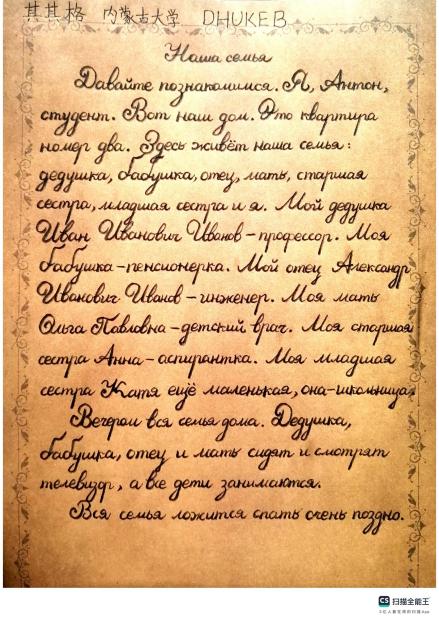 其其格 内蒙古大学 DHUKEB
Наша семья
Давайте познакомимся. Я, Антон,
студент. Вот наш дом. Это квартира
номер два. Здесь живёт наша семья:
дедушка, бабушка, отец, мать, старшая
сестра, младшая сестра и я. Мой дедушка
Иван Иванович Иванов – профессор. Моя
бабушка – пенсионерка. Мой отец Александр
Иванович Иванов – инженер. Моя мать
Ольга Павловна – детский врач. Моя старшая
сестра Анна – аспирантка. Моя младшая
сестра Катя ещё маленькая, она – школьница.
Вечером вся семья дома. Дедушка,
бабушка, отец и мать сидят и смотрят
телевизор, а все дети занимаются.
Вся семья ложится спать очень поздно.
CS 扫描全能王
3亿人都在用的扫描App